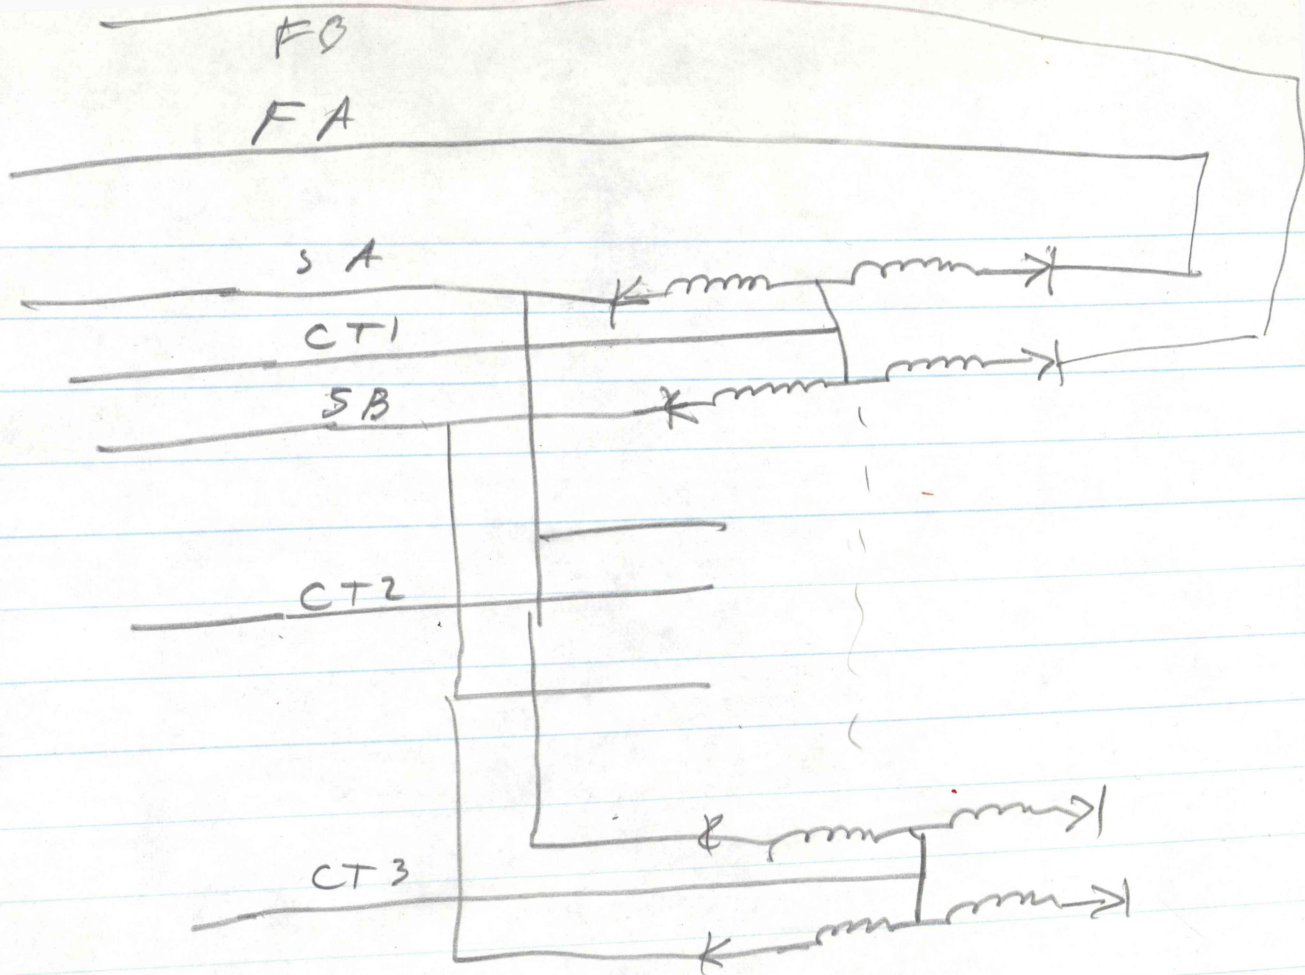 FB
FA
SA
CT1
SB
CT2
CT3